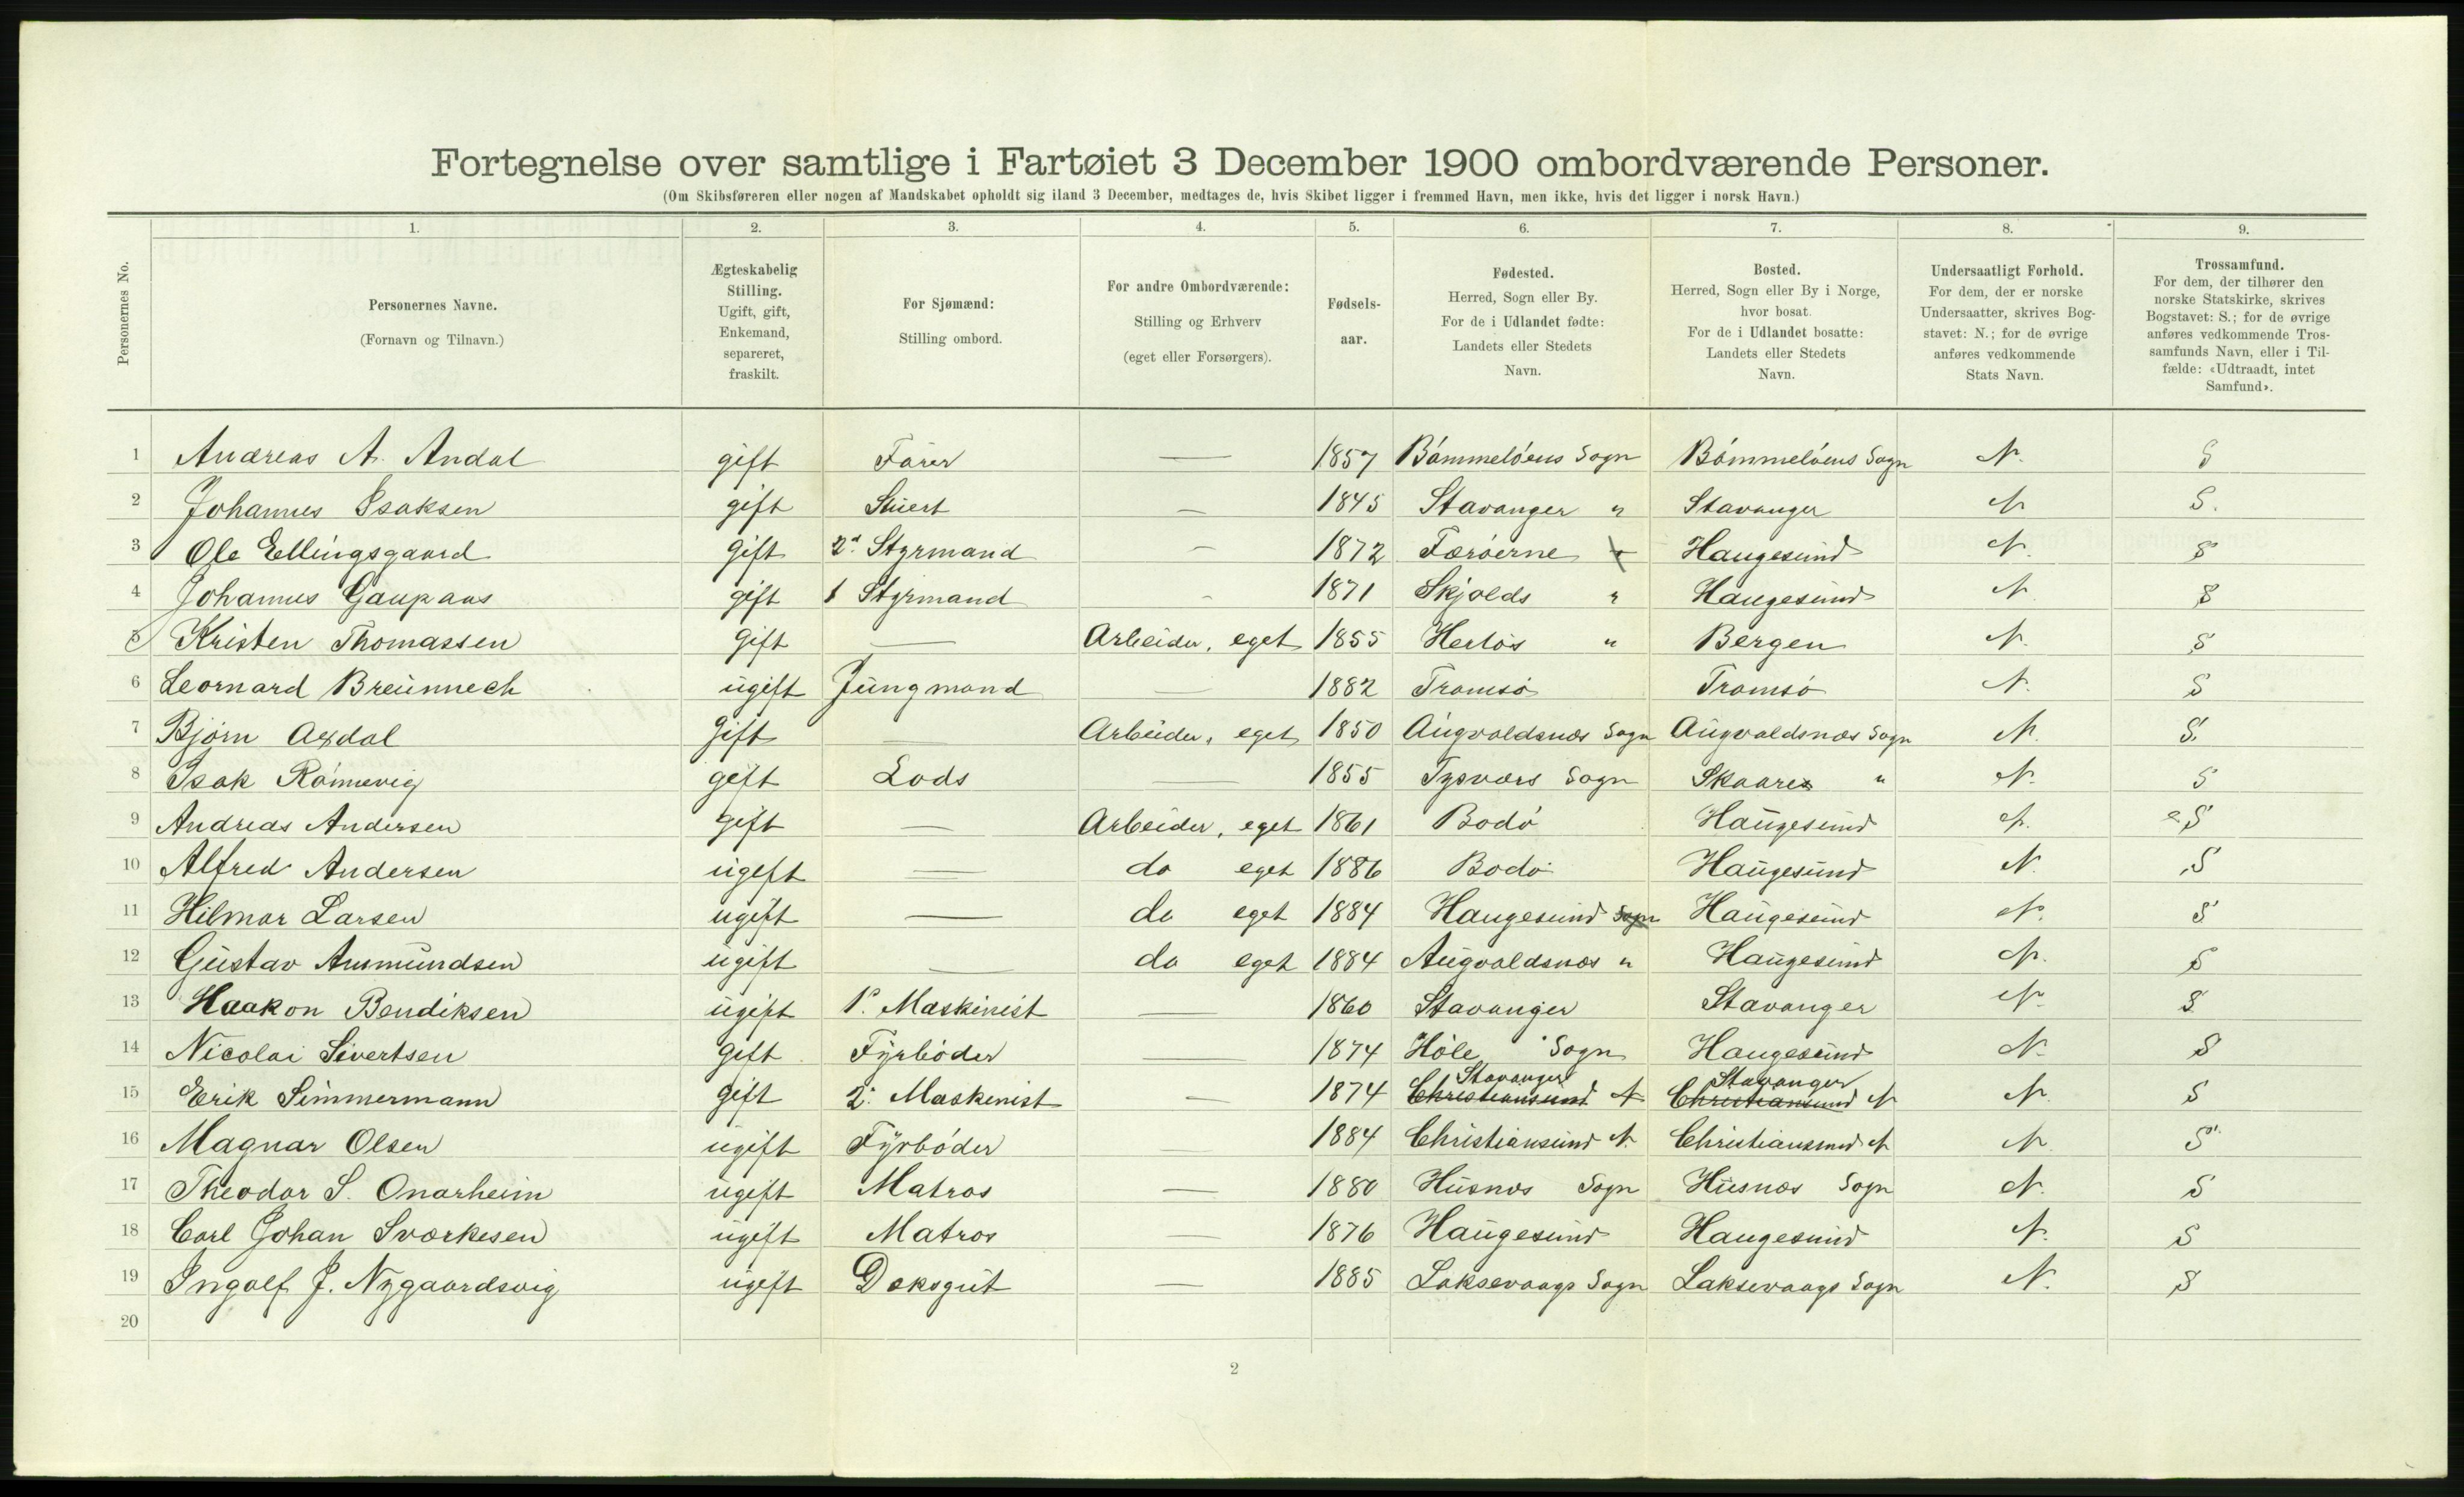 Fortegnelse over samtlige i Fartøiet 3 December 1900 ombordværende Personer.
(Om Skibsføreren eller nogen af Mandskabet opholdt sig iland 3 December, medtages de, hvis Skibet ligger i fremmed Havn, men ikke, hvis det ligger i norsk Havn.)
Personernes No.
1. 2. 3. 4. 5. 6. 7. 8. 9.
Personernes Navne.
(Fornavn og Tilnavn.)
Ægteskabelig
Stilling.
Ugift, gift,
Enkemand,
separeret,
fraskilt.
For Sjømænd:
Stilling ombord.
For andre Ombordværende:
Stilling og Erhverv
(eget eller Forsørgers).
Fødsels-
aar.
Fødested.
Herred, Sogn eller By.
For de i Udlandet fødte:
Landets eller Stedets
Navn.
Bosted.
Herred, Sogn eller By i Norge,
hvor bosat.
For de i Udlandet bosatte:
Landets eller Stedets
Navn.
Undersaatligt Forhold.
For dem, der er norske
Undersaatter, skrives Bog-
stavet: N.; for de øvrige
anføres vedkommende
Stats Navn.
Trossamfund.
For dem, der tilhører den
norske Statskirke, skrives
Bogstavet: S.; for de øvrige
anføres vedkommende Tros-
samfunds Navn, eller i Til-
fælde: «Udtraadt, intet
Samfund».
1 Andreas A. Andal gift Förer — 1857 Bómmelóens Sogn Bómmelóens Sogn N. S
2 Johannes Isaksen gift Stuert — 1845 Stavanger " Stavanger N S.
3 Ole Ellingsgaard gift 2d Styrmand — 1872 Færóerne Haugesund N. S
4 Johannes Gaupaas gift 1 Styrmand - 1871 Skjolds " Haugesund N S
5 Kristen Thomassen gift — Arbeider, eget 1855 Herlós " Bergen N. S
6 Leornard Breunnech ugift Jungmand — 1882 Tromsó Tromsó N. S
7 Bjórn Axdal gift — Arbeider, eget 1850 Augvaldsnæs Sogn Augvaldsnæs Sogn N. S.
8 Isak Rómmevig gift Lods — 1855 Tysværs Sogn Skaare " N. S
9 Andreas Andersen gift — Arbeider, eget 1861 Bodó Haugesund N. S
10 Alfred Andersen ugift — do eget 1886 Bodó Haugesund N. S
11 Hilmar Larsen ugift — do eget 1884 Haugesund Sogn Haugesund N. S
12 Gustav Asmundsen ugift — do eget 1884 Augvaldsnæs " Haugesund N. S
13 Haakon Bendiksen ugift 1e Maskinist — 1860 Stavanger Stavanger N. S
14 Nicolai Sivertsen gift Fyrbóder — 1874 Hóle Sogn Haugesund N. S
Stavanger Stavanger
15 Erik Simmermann gift 2: Maskinist — 1874 Christiansund N Christiansund N N. S
16 Magnar Olsen ugift Fyrbóder — 1884 Christiansund N. Christiansund N N. S
17 Theodor S. Onarheim ugift Matros — 1880 Husnæs Sogn Husnæs Sogn N. S
18 Carl Johan Sværkesen ugift Matros — 1876 Haugesund Haugesund N. S
19 Ingolf J. Nygaardsvig ugift Deksgut — 1885 Laksevaags Sogn Laksevaags Sogn N. S
20
2